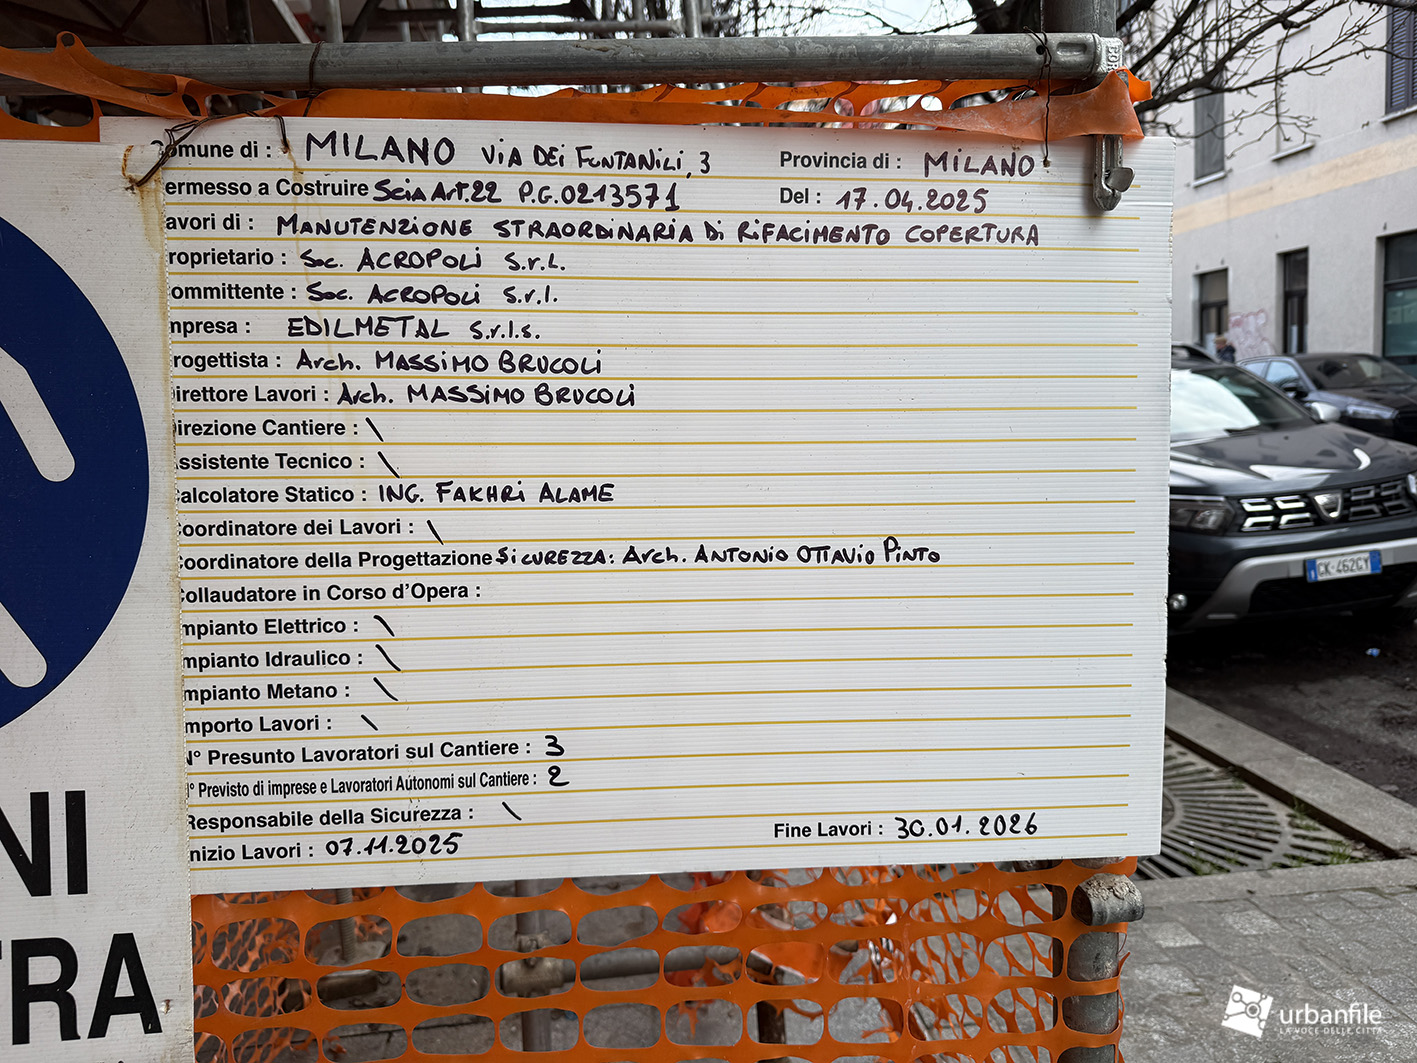 omune di : MILANO Via DEi FONTANiLi, 3 Provincia di : MiLANO
ermesso a Costruire Scia Art.22 P.G.0213571 Del : 17.04.2025
avori di : MANUTENZIONE STRAORDINARIA Di RiFACIMENTO COPERTURA
roprietario : Soc. ACROPOLi S.r.L.
ommittente : Soc. ACROPOLi S.r.l.
mpresa : EDILMETAL S.r.l.s.
rogettista : Arch. MASSiMO BRUCOLi
irettore Lavori : Arch. MASSiMO BRUCOLi
irezione Cantiere : \
ssistente Tecnico : \
alcolatore Statico : ING. FAKHRi ALAME
oordinatore dei Lavori : \
oordinatore della Progettazione SiCUREZZA: Arch. ANTONiO OTTAViO PiNTO
ollaudatore in Corso d'Opera :
mpianto Elettrico : \
mpianto Idraulico : \
mpianto Metano : \
mporto Lavori : \
N° Presunto Lavoratori sul Cantiere : 3
° Previsto di imprese e Lavoratori Autonomi sul Cantiere : 2
Responsabile della Sicurezza : \
nizio Lavori : 07.11.2025 Fine Lavori : 30.01.2026
NI
TRA
GK·462GY
urbanfile
LA VOCE DELLE CITTÀ